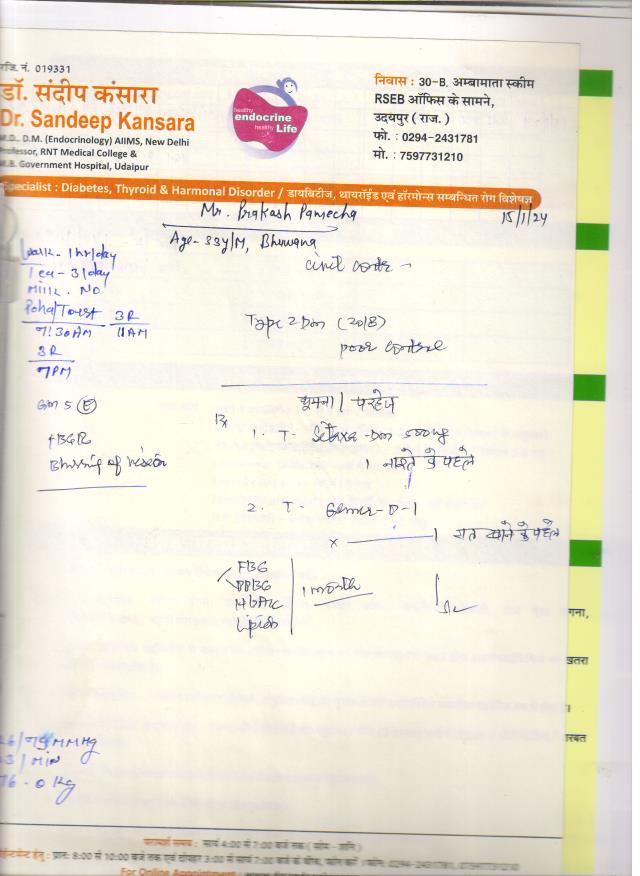 रजि. नं. 019331
डॉ. संदीप कंसारा
Dr. Sandeep Kansara
M.D., D.M. (Endocrinology) AIIMS, New Delhi
Professor, RNT Medical College &
M.B. Government Hospital, Udaipur
healthy
endocrine
healthy Life
निवास : 30-B, अम्बामाता स्कीम
RSEB ऑफिस के सामने,
उदयपुर ( राज. )
फो. : 0294-2431781
मो. : 7597731210
Specialist : Diabetes, Thyroid & Harmonal Disorder / डायबिटीज, थायरॉईड एवं हॉरमोन्स सम्बन्धित रोग विशेषज्ञ
Mr. Prakash Pamecha
15/1/24
Age- 33y/M, Bhuwana
Walk - 1hr/day
Tea - 3/day
Milk - NO
Poha/Toast 3R
11AM
3R
7PM
Type 2 Dm (2018)
poor control
घूमना / परहेज
Rx
Blurring of vision
1. T-
1 नाश्ते के पहले
2. T-
x 1 रात खाने के पहले
FBG
PPBG
HbA1c
Lipids
1 month
गना,
खतरा
रबत
76.0 Kg
परामर्श समय : सायं 4:00 से 7:00 बजे तक ( सोम - शनि )
For Online Appointment